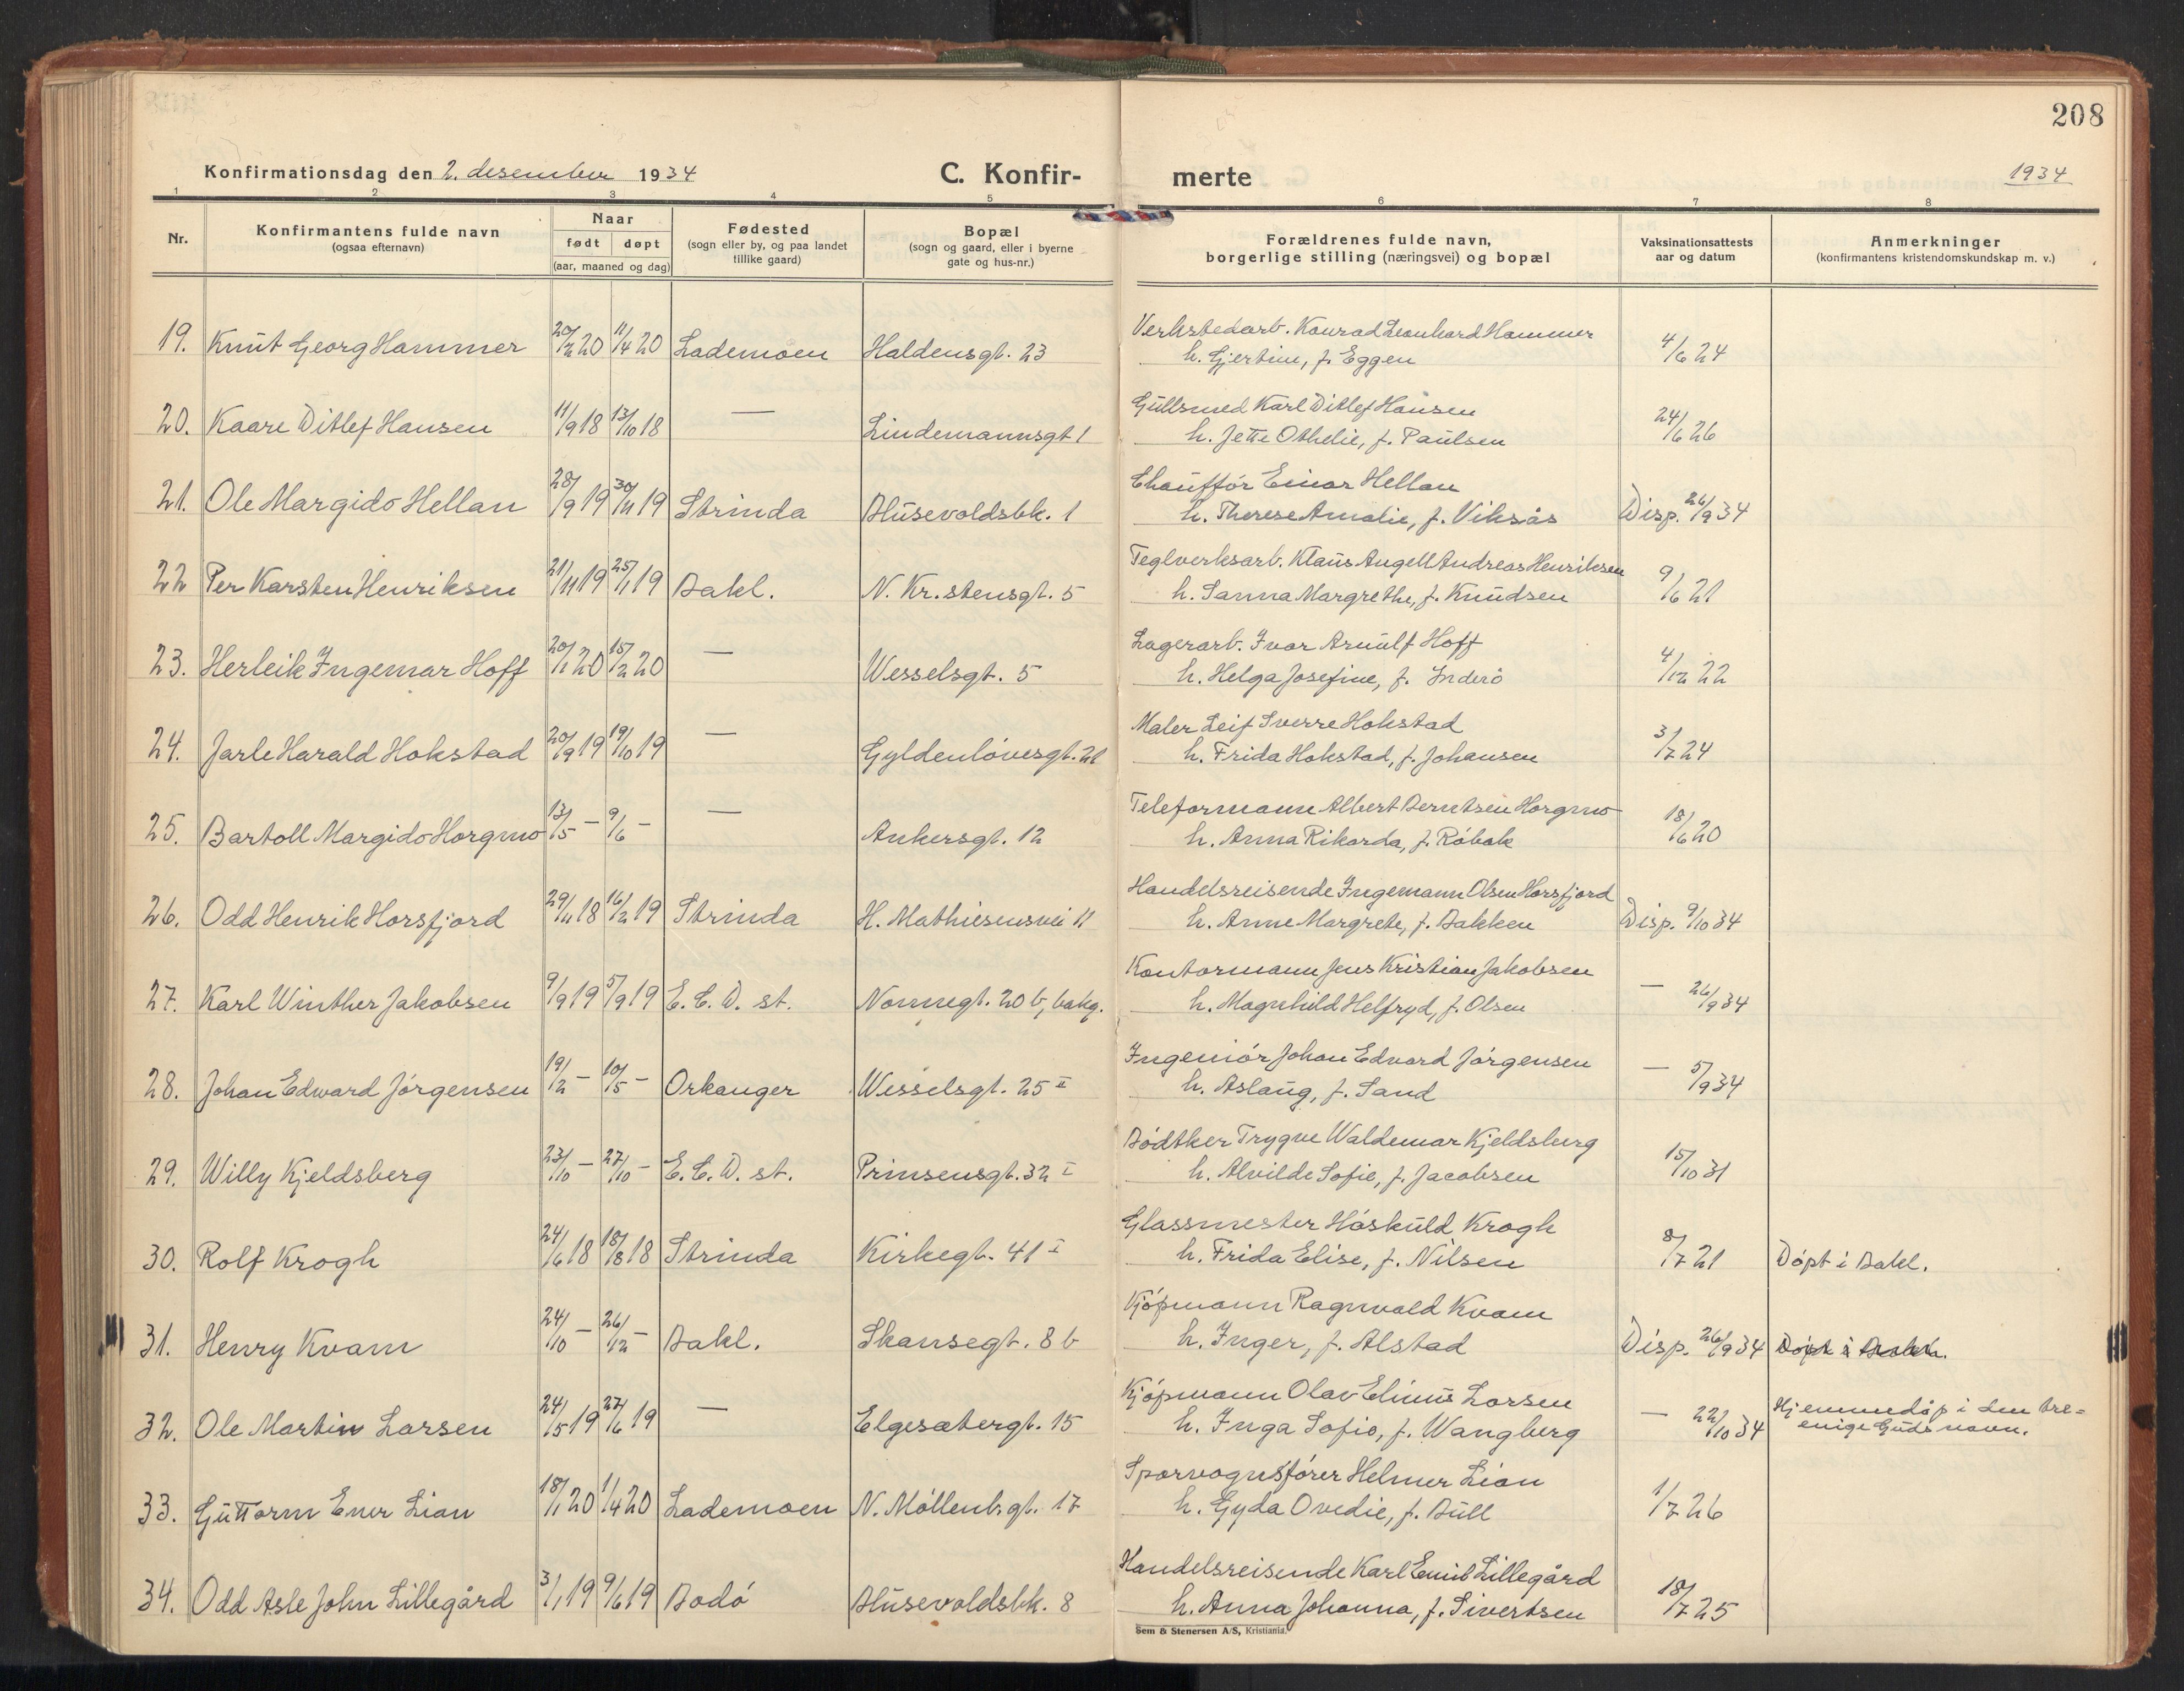 208
Konfirmationsdag den 2. desember 1934
C. Konfir-
merte
1934
1 2 3 4 5 6 7 8
Nr.
Konfirmantens fulde navn
(ogsaa efternavn)
Naar
født døpt
(aar, maaned og dag)
Fødested
(sogn eller by, og paa landet
tillike gaard)
Bopæl
(sogn og gaard, eller i byerne
gate og hus-nr.)
Forældrenes fulde navn,
borgerlige stilling (næringsvei) og bopæl
Vaksinationsattests
aar og datum
Anmerkninger
(konfirmantens kristendomskundskap m. v.)
19. Knut Georg Hammer 20/2 20 11/4 20 Lademoen Haldensgt. 23
Verkstedarb. Konrad Leonhard Hammer
h. Gjertine, f. Eggen 4/6 24
20. Kaare Ditlef Hansen 11/9 18 13/10 18 — Lindemannsgt 1
Gullsmed Karl Ditlef Hansen
h. Jette Othelie, f. Paulsen 24/6 26
21. Ole Margido Hellan 28/9 19 30/11 19 Strinda Blusevoldsbk. 1
Chauffør Einar Hellan
h. Therese Amalie, f. Viksås Disp. 26/9 34
22 Per Karsten Henriksen 21/11 19 25/1 19 Bakl. N. Kr.stensgt. 5
Teglverksarb. Klaus Angell Andreas Henriksen
h. Sanna Margrethe, f. Knudsen 9/6 21
23. Herleik Ingemar Hoff 20/1 20 15/2 20 — Wesselsgt. 5
Lagerarb. Ivar Arnulf Hoff
h. Helga Josefine, f. Inderø 4/12 22
24. Jarle Harald Hokstad 20/9 19 19/10 19 — Gyldenløvesgt.
Maler Leif Sverre Hokstad
h. Frida Hokstad, f. Johansen 3/7 24
25. Bartoll Margido Horgmo 13/5 — 9/6 — — Ankersgt. 12
Teleformann Albert Berntsen Horgmo
h. Anna Rikarda, f. Røbak 18/6 20
26. Odd Henrik Horsfjord 29/11 18 16/2 19 Strinda H. Mathiesensvei 11
Handelsreisende Ingemann Olsen Horsfjord
h. Anne Margrete, f. Bakken Disp. 9/10 34
27. Karl Winther Jakobsen 9/9 19 5/9 19 E. C. D. st. Nonnegt. 20 b, bakg.
Kontormann Jens Kristian Jakobsen
h. Magnhild Helfryd, f. Olsen — 26/9 34
28. Johan Edward Jørgensen 19/2 — 10/5 — Orkanger Wesselsgt. 25 II
Ingeniør Johan Edvard Jørgensen
h. Aslaug, f. Sand — 5/9 34
29. Willy Kjeldsberg 23/10 — 27/10 — E. C. D. st. Prinsensgt. 32 I
Bødtker Trygve Waldemar Kjeldsberg
h. Alvilde Sofie, f. Jacobsen 15/10 31
30. Rolf Krogh 24/6 18 18/8 18 Strinda Kirkegt. 41 I
Glassmester Høskuld Krogh
h. Frida Elise, f. Nilsen 8/7 21 Døpt i Bakl.
31. Henry Kvam 24/10 — 26/12 — Bakl. Skansegt. 8 b
Kjøpmann Ragnvald Kvam
h. Inger, f. Alstad Disp. 26/9 34 Døpt i
32. Ole Martin Larsen 24/5 19 27/6 19 — Elgesætergt. 15
Kjøpmann Olav Elinus Larsen
h. Inga Sofie, f. Wangberg — 22/10 34 Hjemmedøp i den tre=
enige Guds navn.
33. Guttorm Ener Lian 18/1 20 1/4 20 Lademoen N. Møllenb.gt. 17
Sporvognsfører Helmer Lian
h. Gyda Ovedie, f. Bull 1/7 26
34. Odd Asle John Lillegård 3/1 19 9/6 19 Bodø Blusevoldsbk. 8
Handelsreisende Karl Emil Lillegård
h. Anna Johanna, f. Sivertsen 18/7 25
Sem & Stenersen A/S, Kristiania.